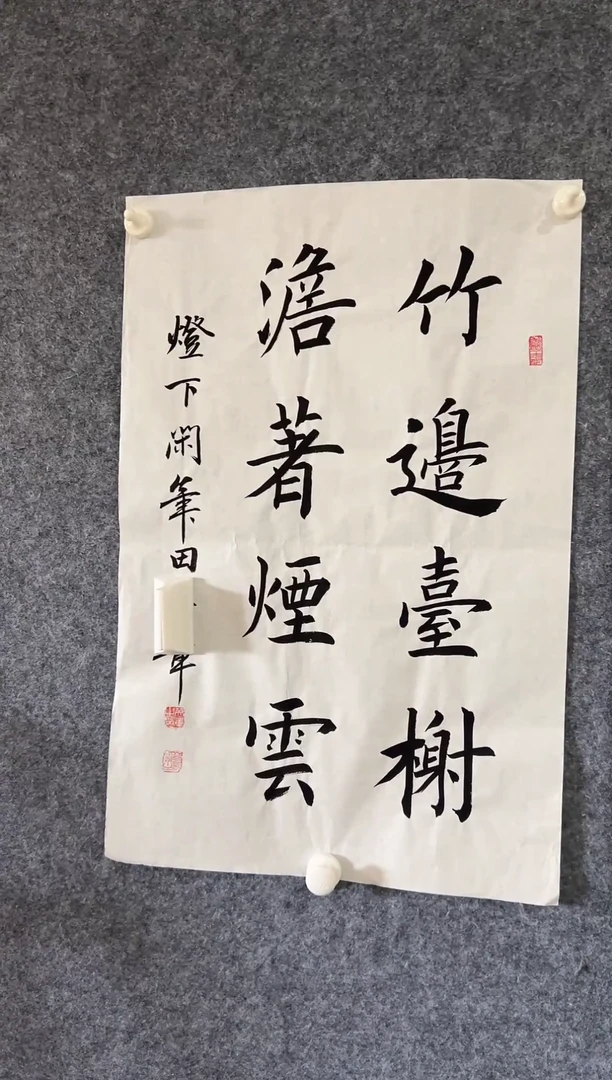 竹邊臺榭
澹著煙雲
燈下閑筆田